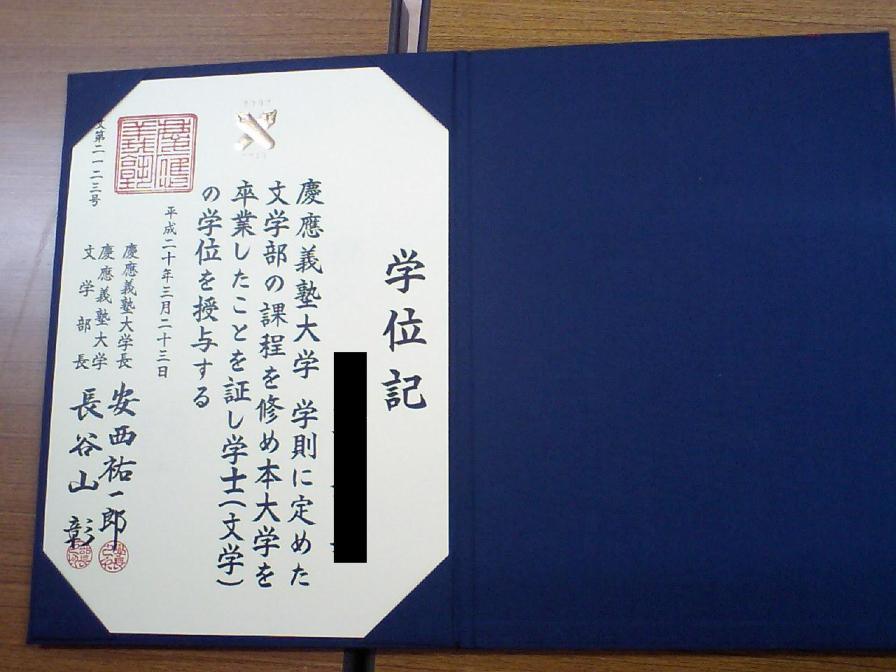 学位記
慶應義塾大学 学則に定めた
文学部の課程を修め本大学を
卒業したことを証し学士(文学)
の学位を授与する
平成二十年三月二十三日
慶應義塾大学長 安西祐一郎
慶應義塾大学
文学部長 長谷山 彰
文第二一二三号
慶應義塾